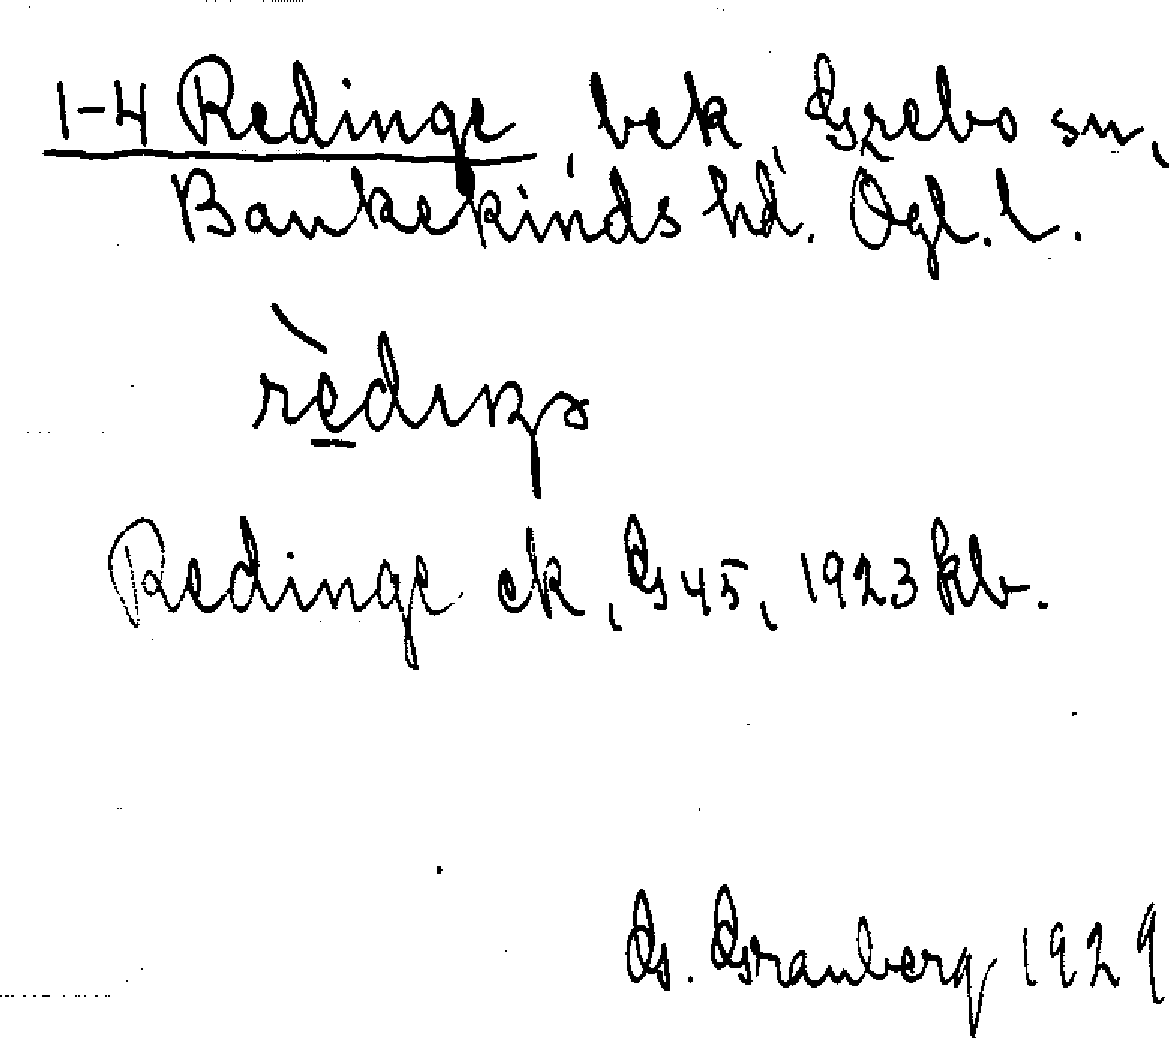 1-4 Redinge, bek, Grebo sn,
Bankekinds hd. Ögl. l.
rèdıŋə
Redinge ek, G 45, 1923 kb.
G. Granberg 1929